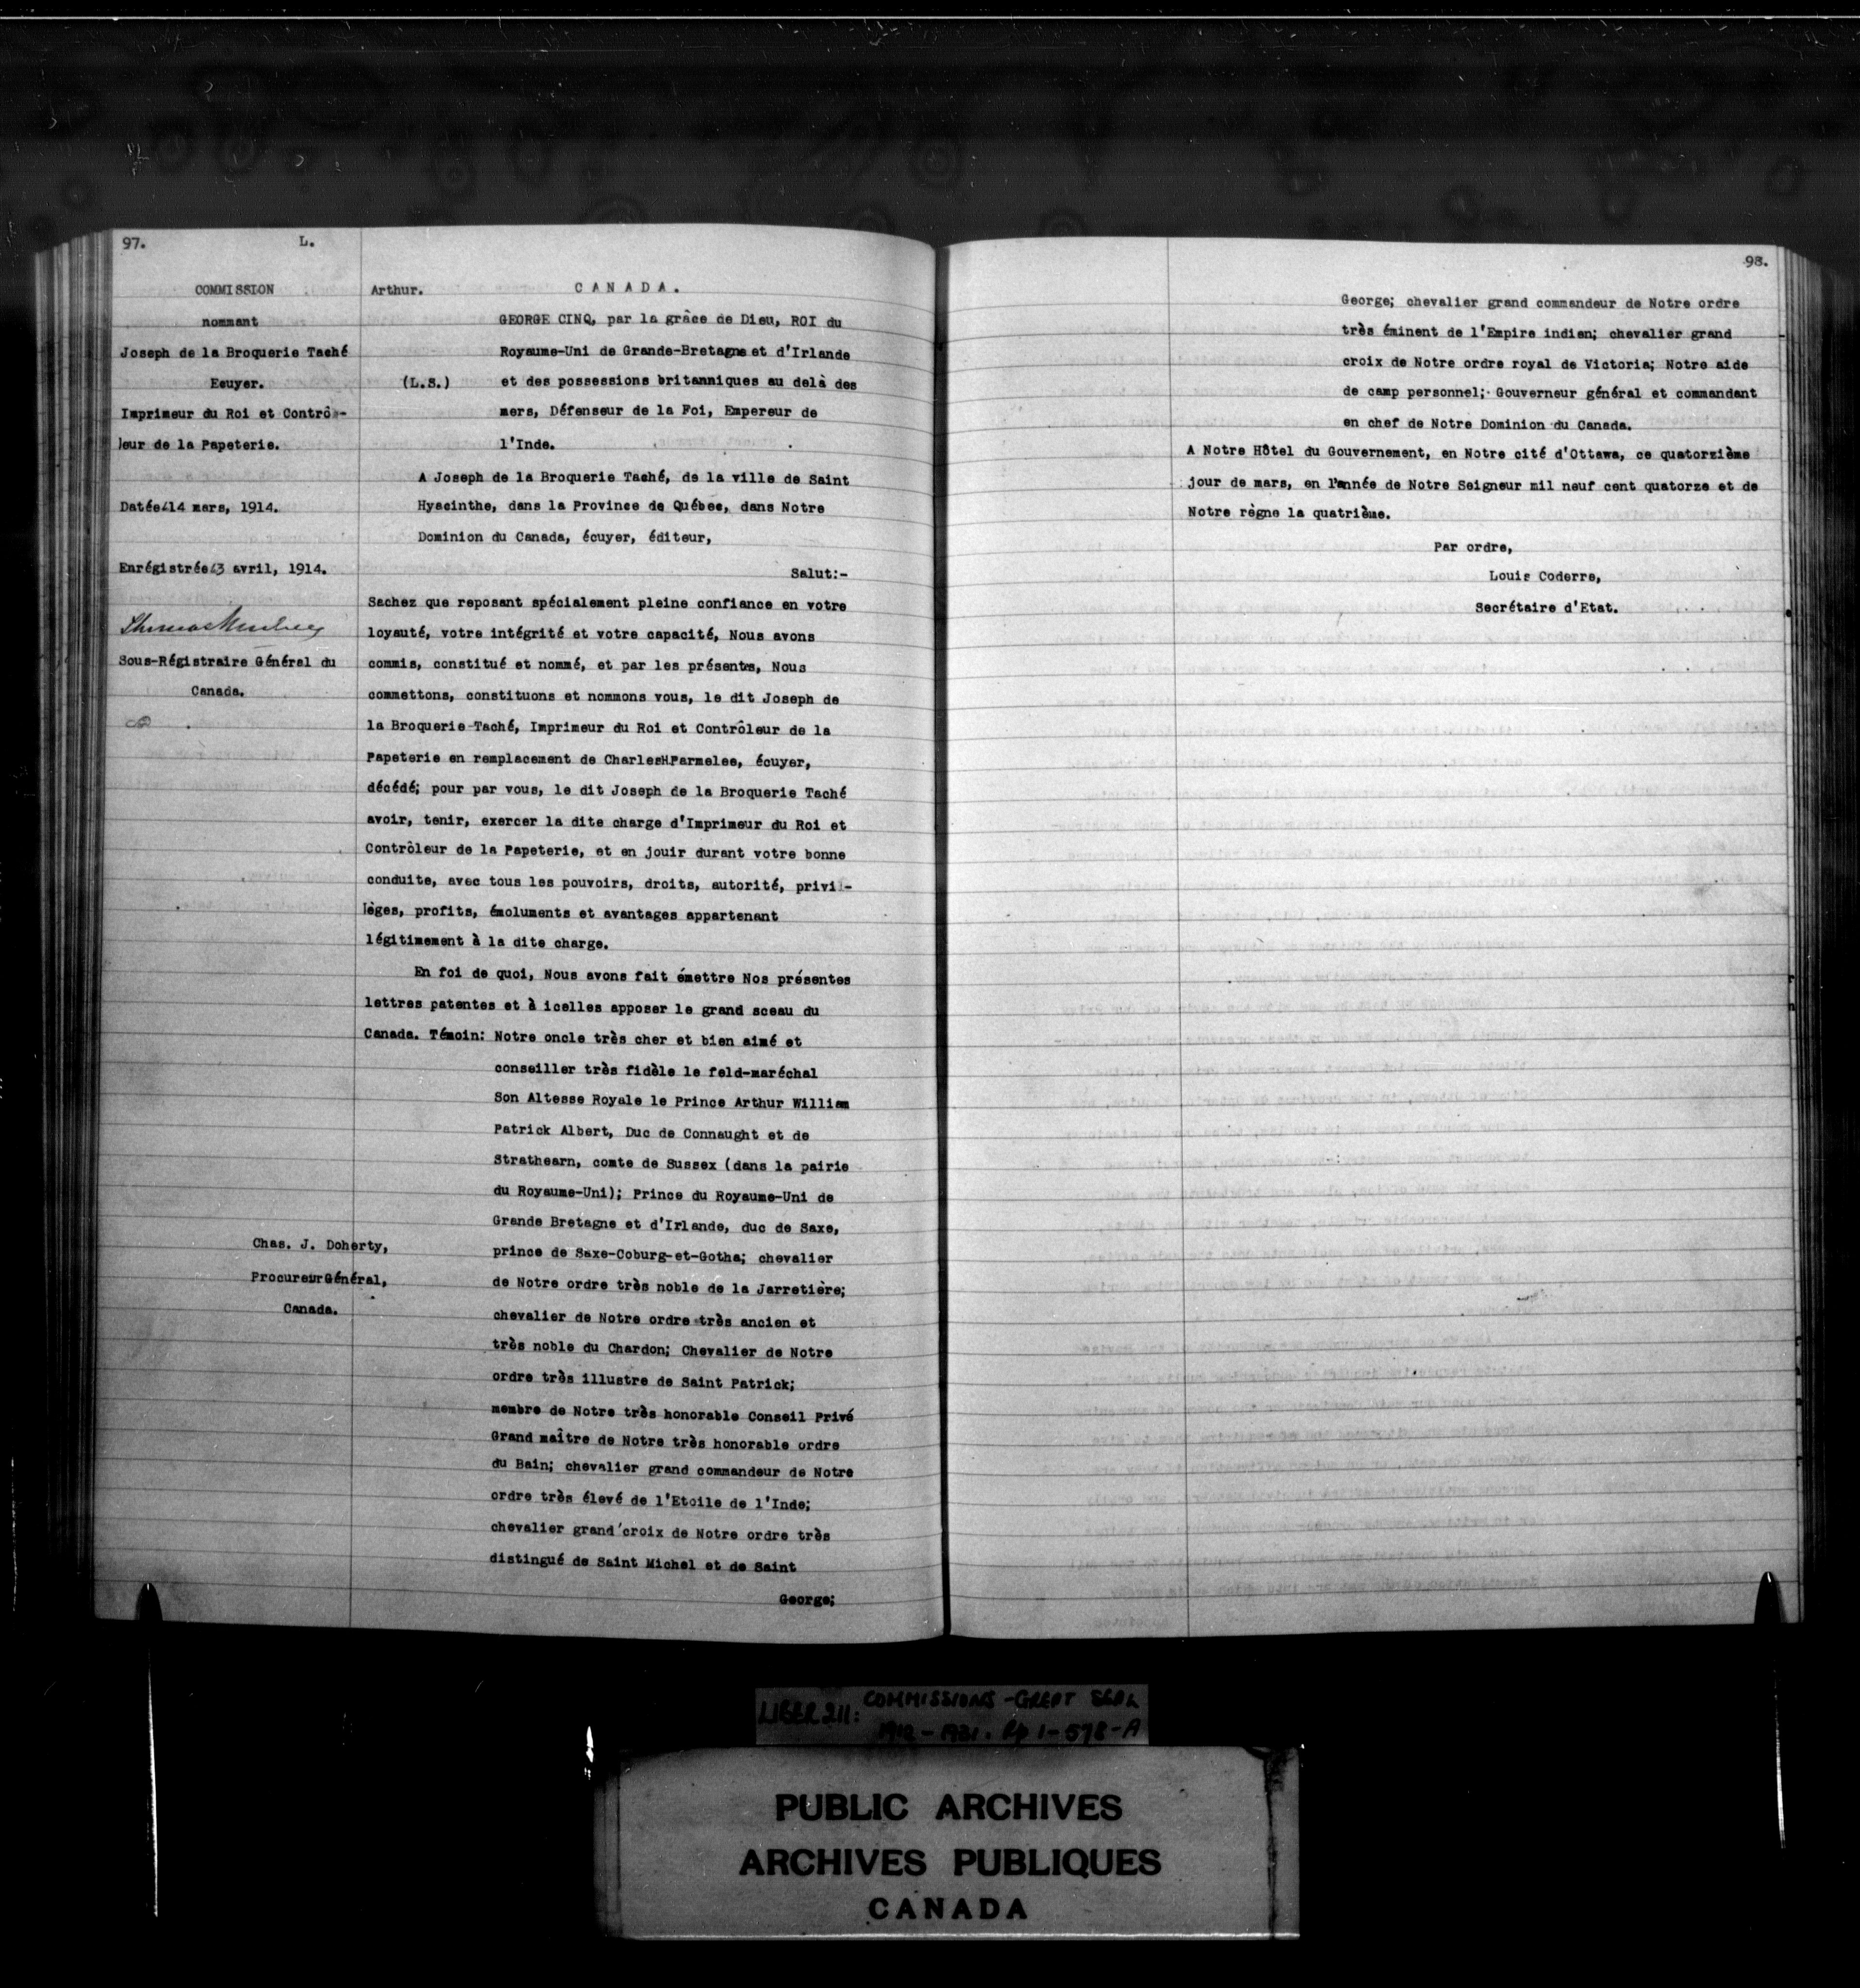 97.
L.
COMMISSION
nommant
Joseph de la Broquerie Taché
Ecuyer.
Imprimeur du Roi et Contrô-
leur de la Papeterie.
Datée 14 mars, 1914.
Enrégistrée 3 avril, 1914.
Sous-Régistraire Général du
Canada.
Chas. J. Doherty,
Procureur Général,
Canada.
Arthur.
CANADA.
(L.S.)
GEORGE CINQ, par la grâce de Dieu, ROI du
Royaume-Uni de Grande-Bretagne et d'Irlande
et des possessions britanniques au delà des
mers, Défenseur de la Foi, Empereur de
l'Inde.
A Joseph de la Broquerie Taché, de la ville de Saint
Hyacinthe, dans la Province de Québec, dans Notre
Dominion du Canada, écuyer, éditeur,
Salut:-
Sachez que reposant spécialement pleine confiance en votre
loyauté, votre intégrité et votre capacité, Nous avons
commis, constitué et nommé, et par les présentes, Nous
commettons, constituons et nommons vous, le dit Joseph de
la Broquerie Taché, Imprimeur du Roi et Contrôleur de la
Papeterie en remplacement de Charles H Parmelee, écuyer,
décédé; pour par vous, le dit Joseph de la Broquerie Taché
avoir, tenir, exercer la dite charge d'Imprimeur du Roi et
Contrôleur de la Papeterie, et en jouir durant votre bonne
conduite, avec tous les pouvoirs, droits, autorité, privi-
lèges, profits, émoluments et avantages appartenant
légitimement à la dite charge.
En foi de quoi, Nous avons fait émettre Nos présentes
lettres patentes et à icelles apposer le grand sceau du
Canada. Témoin: Notre oncle très cher et bien aimé et
conseiller très fidèle le feld-maréchal
Son Altesse Royale le Prince Arthur William
Patrick Albert, Duc de Connaught et de
Strathearn, comte de Sussex (dans la pairie
du Royaume-Uni); Prince du Royaume-Uni de
Grande Bretagne et d'Irlande, duc de Saxe,
prince de Saxe-Coburg-et-Gotha; chevalier
de Notre ordre très noble de la Jarretière;
chevalier de Notre ordre très ancien et
très noble du Chardon; Chevalier de Notre
ordre très illustre de Saint Patrick;
membre de Notre très honorable Conseil Privé
Grand maître de Notre très honorable ordre
du Bain; chevalier grand commandeur de Notre
ordre très élevé de l'Etoile de l'Inde;
chevalier grand croix de Notre ordre très
distingué de Saint Michel et de Saint
George;
98.
George; chevalier grand commandeur de Notre ordre
très éminent de l'Empire indien; chevalier grand
croix de Notre ordre royal de Victoria; Notre aide
de camp personnel; Gouverneur général et commandant
en chef de Notre Dominion du Canada.
A Notre Hôtel du Gouvernement, en Notre cité d'Ottawa, ce quatorzième
jour de mars, en l'année de Notre Seigneur mil neuf cent quatorze et de
Notre règne la quatrième.
Par ordre,
Louis Coderre,
Secrétaire d'Etat.
LIBER 211: COMMISSIONS - GREAT SEAL
1912-1921. Pp 1-578-A
PUBLIC ARCHIVES
ARCHIVES PUBLIQUES
CANADA